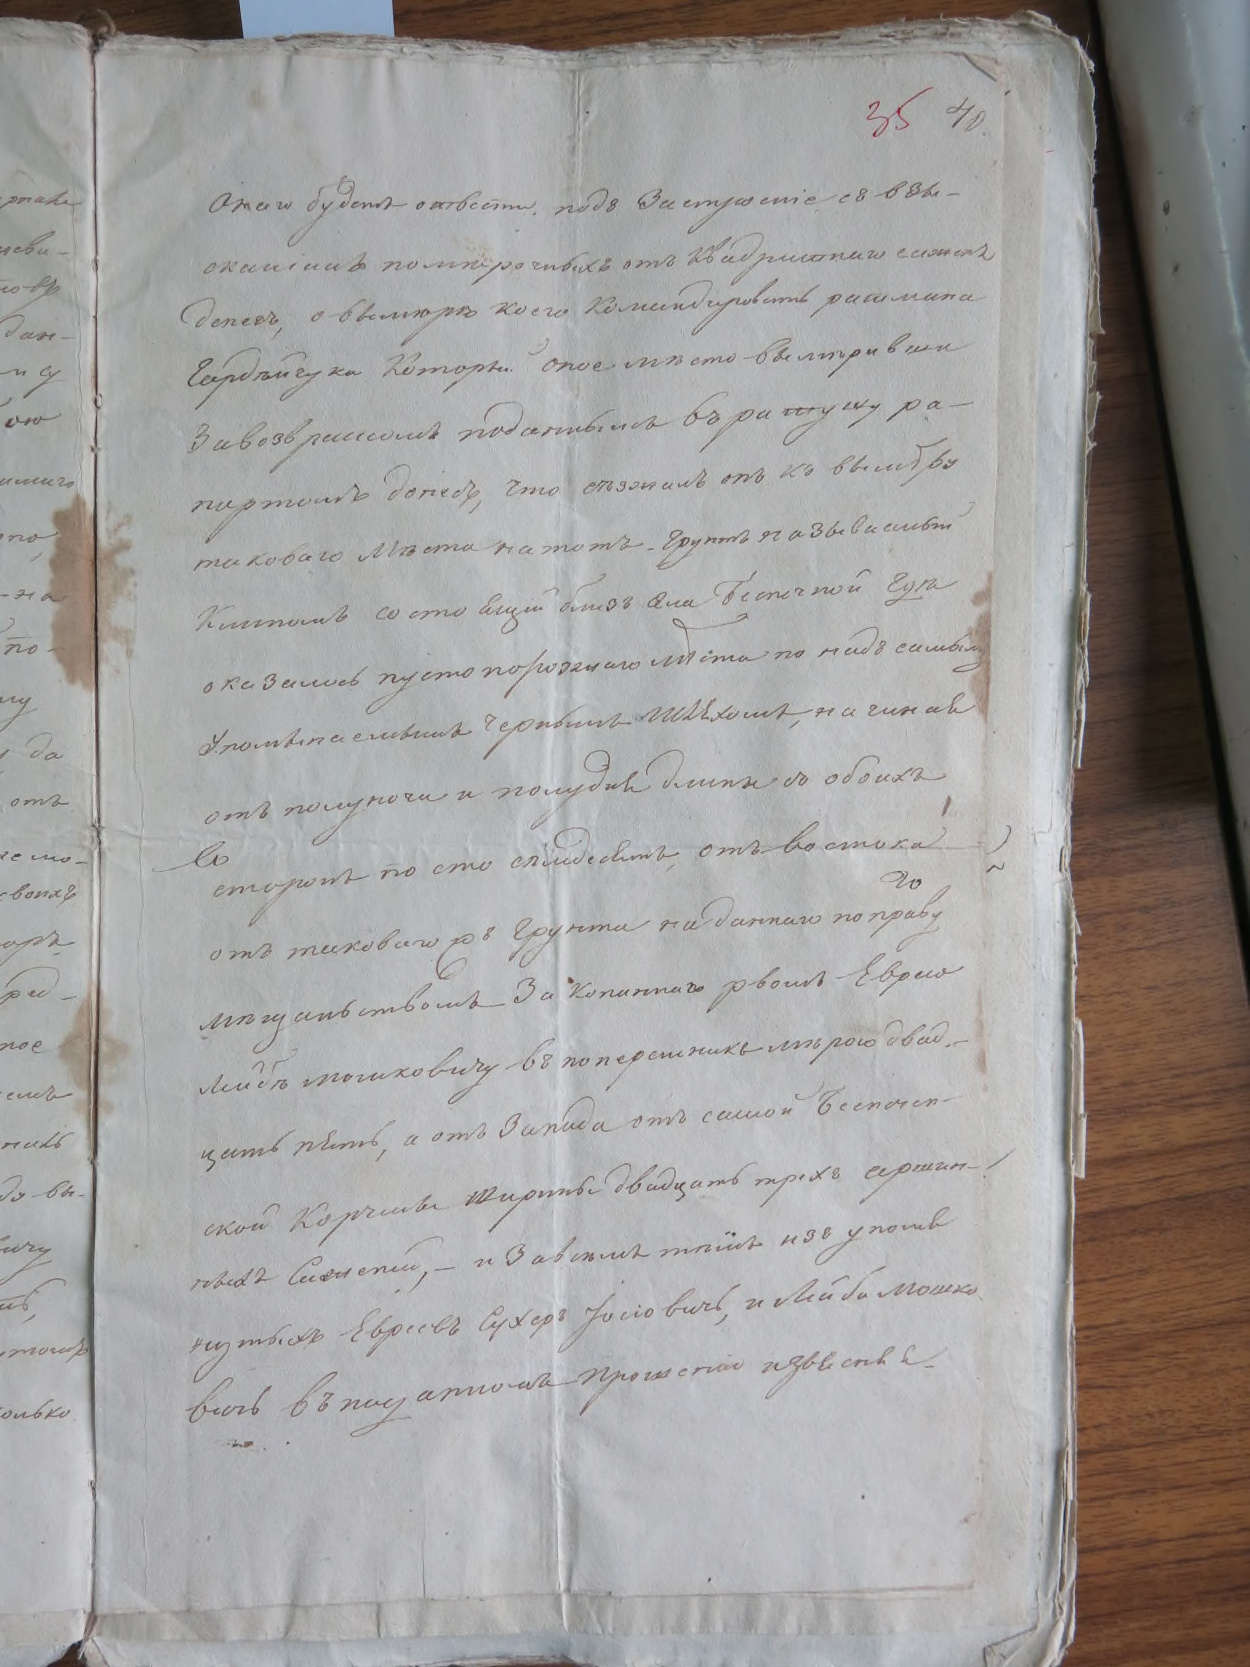 35 40.
онаго будетъ отвести. подъ Застроеніе съ взы-
сканіемъ поляперочныхъ отъ квадратнаго сажня
денегъ, о вымерю коего Командировать ратмана
Который оное место вымеривши
Завозвратомъ поданнымъ въ ратушу ра-
портомъ донесъ, что съезжалъ онъ къ вымеру
таковаго Места на тотъ Грунтъ называемый
состоящій близъ села Беспечной где
оказалось пустопорожнаго места по надъ самымъ
Упоменаемымъ Чернымъ Шляхомъ, начиная
отъ полуночи и полудня длины съ обоихъ
сторонъ по сто семдесятъ, отъ востока
отъ таковаго жъ Грунта наданнаго по праву
мещанствомъ Закопаннаго рвомъ Еврею
Лейбе Мошковичу въ поперешнике мерою двад-
цать пять, а отъ Запада отъ самой Беспечен-
ской Корчмы ширины двадцать трехъ аршин-
ныхъ Саженей, – и Завсемъ темъ изъ упомя
нутыхъ Евреевъ Сухеръ Іосіовичь, и Лейба Мошко
вичь въ поданномъ прошеніи изъясняя